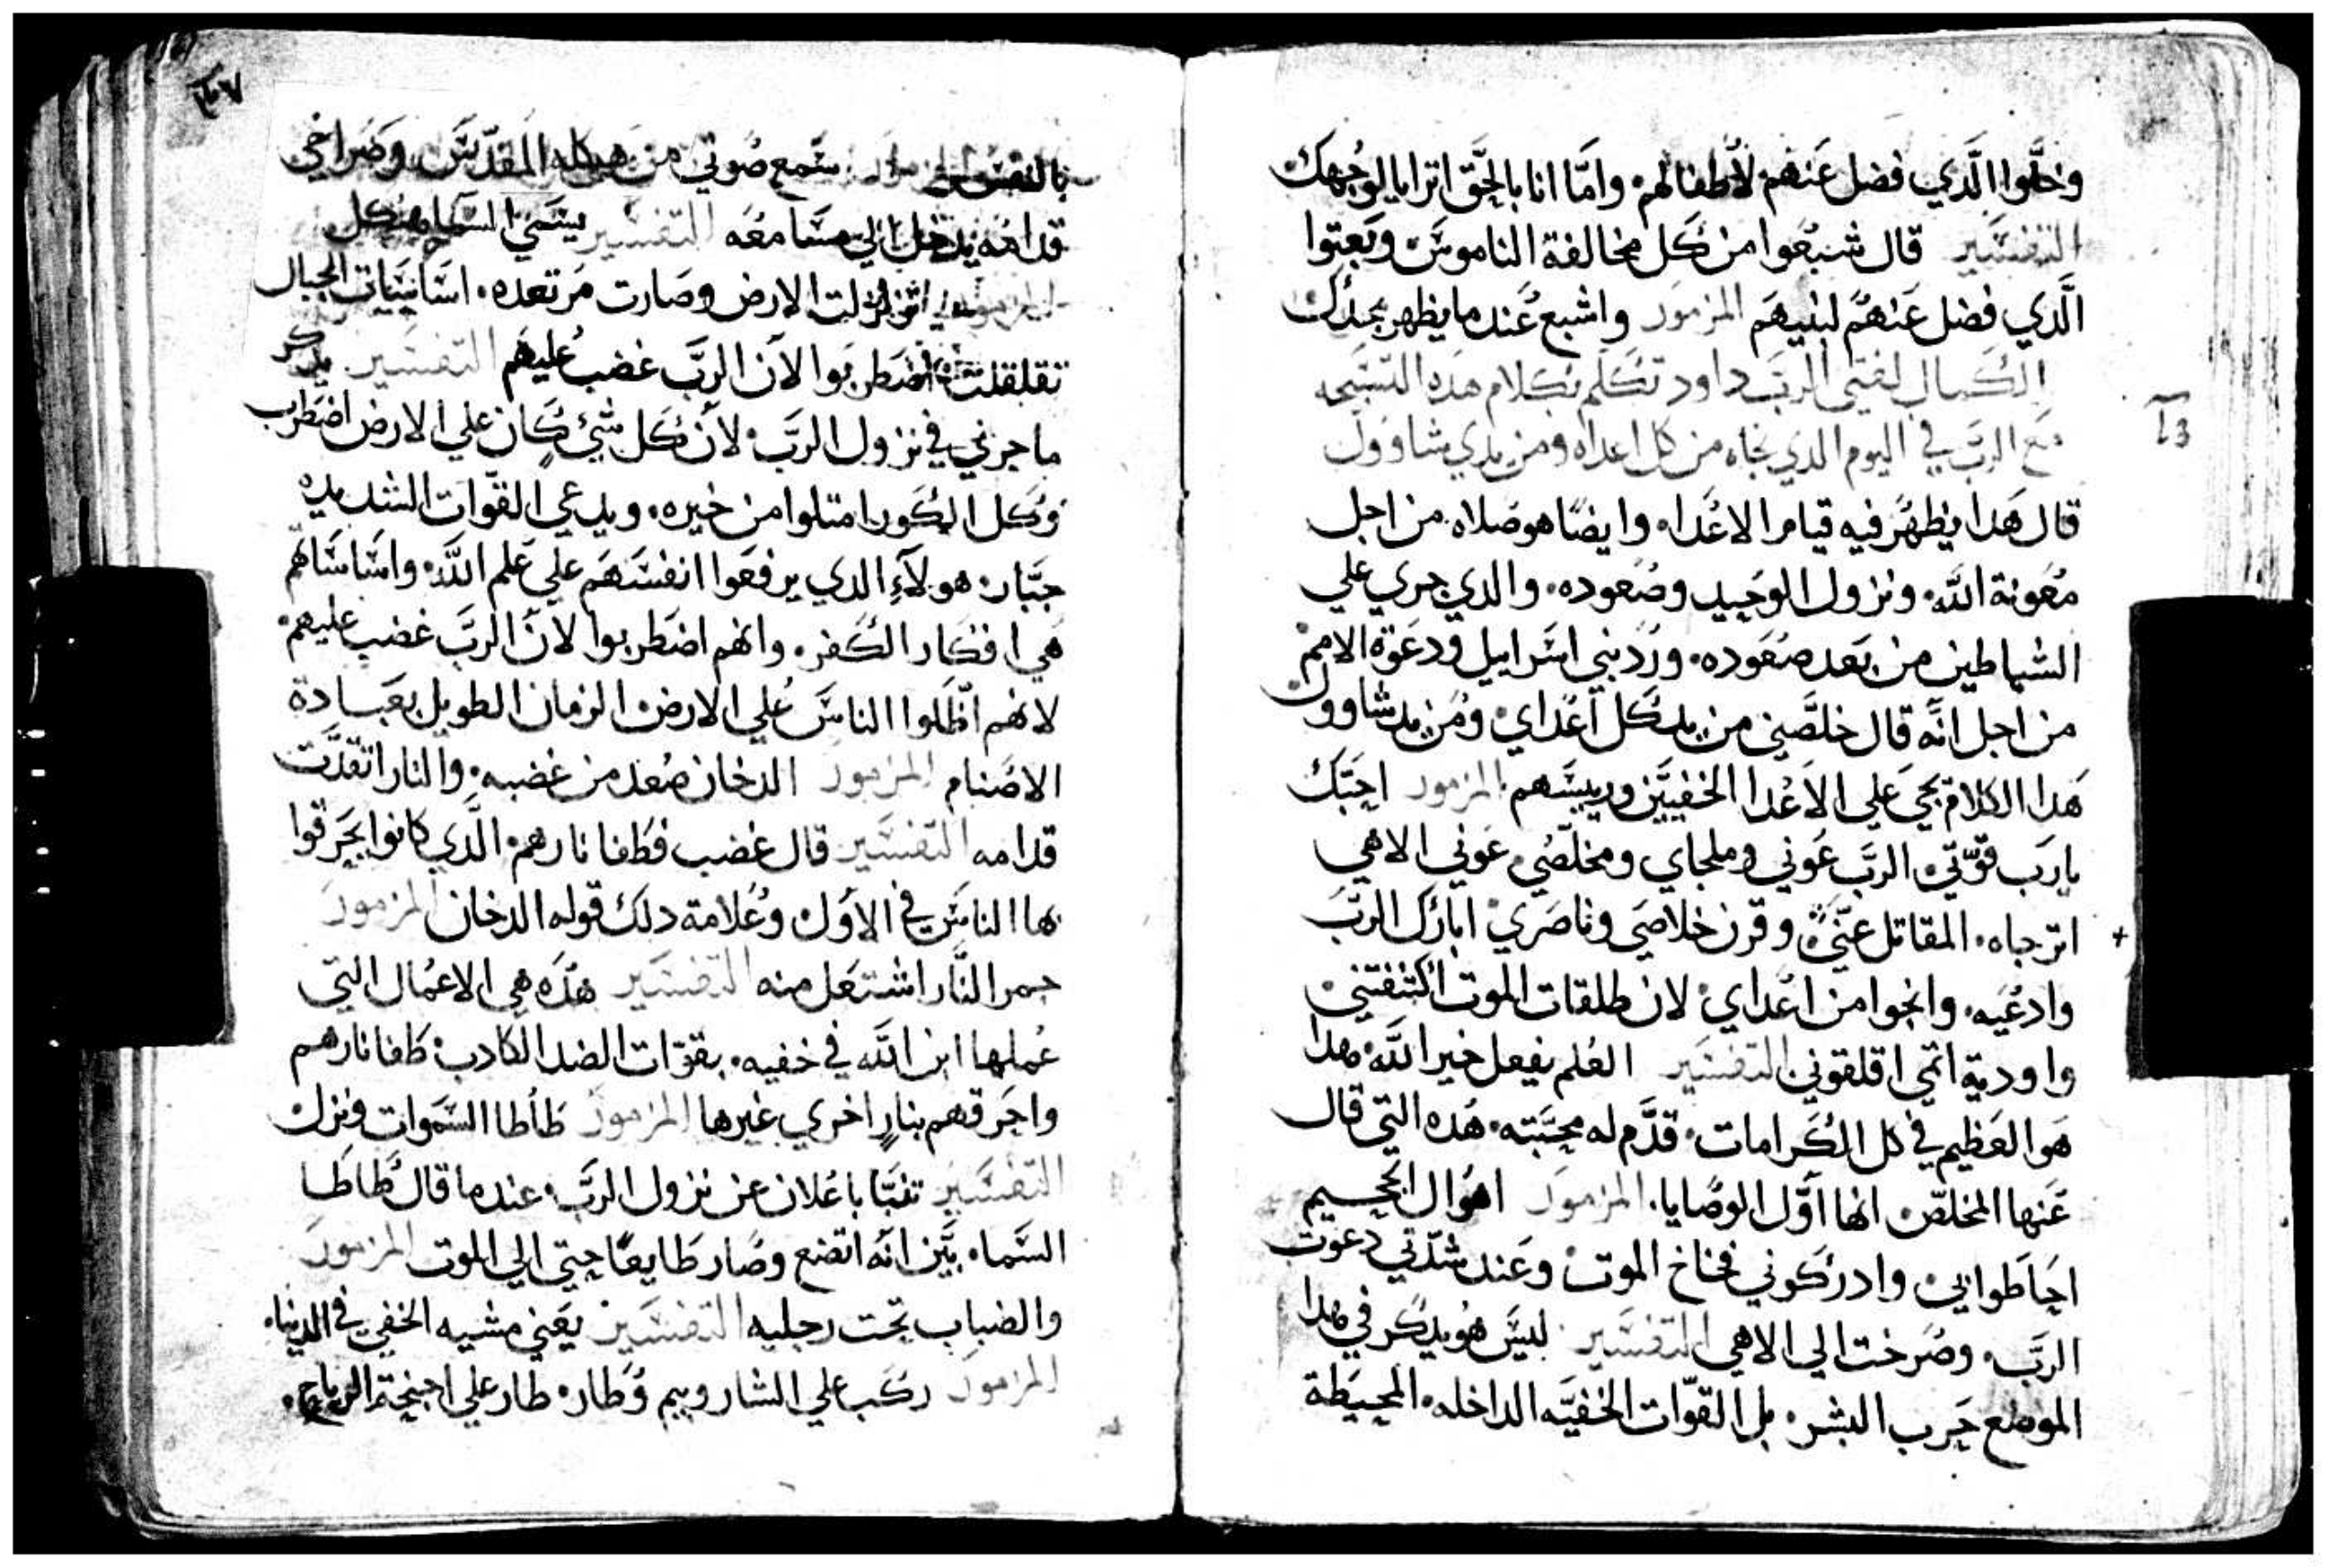 وخلَّوا الَّذي فضل عنهم لأطفالهم وامَّا انا بالحَّق اترايا لوجهك
التفسير قال شبعوا من كل مخالفة الناموس وبعتوا
الَّذي فضل عنهم لبنيهم المزمور واشبع عند ما يظهر مجدك
الكمال لفتى الرب داود تكلم بكلام هذه التسبحه
مع الرب في اليوم الذي نجاه من كل اعداه ومن يدي شاوول
قال هدا يظهر فيه قيام الاعداء وايضًا هو صلاه من اجل
معونة الله ونزول الوحيد وصعوده والدي جري علي
الشياطين من بعد صعوده ورد بني اسرايل ودعوة الامم
من اجل انَّه قال خلصني من يد كل اعداي ومن يد شاوول
هدا الكلام يجي علي الاعدا الخفيين وريسهم المزمور احبَّك
يارب قوّتي الرب عوني وملجاي ومخلّصي عوني الاهي
اترجاه المقاتل عنّي وقرن خلاصي وناصري ابارك الربّ
وادعيه وانجوا من اعداي لان طلقات الموت اكتنفتني
واودية اثمي اقلقوني التفسير العلم يفعل خير الله هدا
هو العظيم في كل الكرامات قدَّم له محبّته هده التي قال
عنها المخلّص انها اوَّل الوصايا المزمور اهوال الجحيم
احاطوا بي وادركوني فخاخ الموت وعند شدّتي دعوت
الربّ وصرخت الي الاهي التفسير ليس هو يدكر في هدا
الموضع حرب البشر بل القوّات الخفيَّه الداخله المحيطة
بالنفس المزمور سمع صوتي من هيكله المقدّس وصراخي
قدامه يدخل الي مسامعه التفسير يسمي السما هيكل
المزمور تزلزلت الارض وصارت مرتعده اساسات الجبال
تقلقلت اضطربوا لان الربَّ غضب عليهم التفسير يدكر
ما جري في نزول الربّ لأن كل شئ كان علي الارض اضطرب
وكل الكور امتلوا من خيره ويدعي القوّات الشديده
جبَّار هولآء الدي يرفعوا انفسهم علي علم الله واساساتهم
هي افكار الكفر وانهم اضطربوا لانَّ الربَّ غضب عليهم
لانهم اظلوا الناس علي الارض الزمان الطويل بعبادة
الاصنام المزمور الدخان صعد من غضبه والنار اتقدَّت
قدامه التفسير قال غضب فطفا نارهم الَّدي كانوا يحرقوا
بها الناس في الاوَّل وعلامة دلك قوله الدخان المزمور
جمر النَّار اشتعل منه التفسير هذه هي الاعمال التي
عملها ابن الله في خفيه بقوّات الضد الكادب طفا نارهم
واحرقهم بنارٍ اخري غيرها المزمور طأطا السموات ونزل
التفسير تنبَّا باعلان عن نزول الربّ عند ما قال طاطا
السَّماء بيَّن انَّه اتضع وصار طايعًا حتي الي الموت المزمور
والضباب تحت رجليه التفسير يعني مشيه الخفي في الدنياء
المزمور ركب علي الشاروبيم وطار طار علي اجنحة الرياح